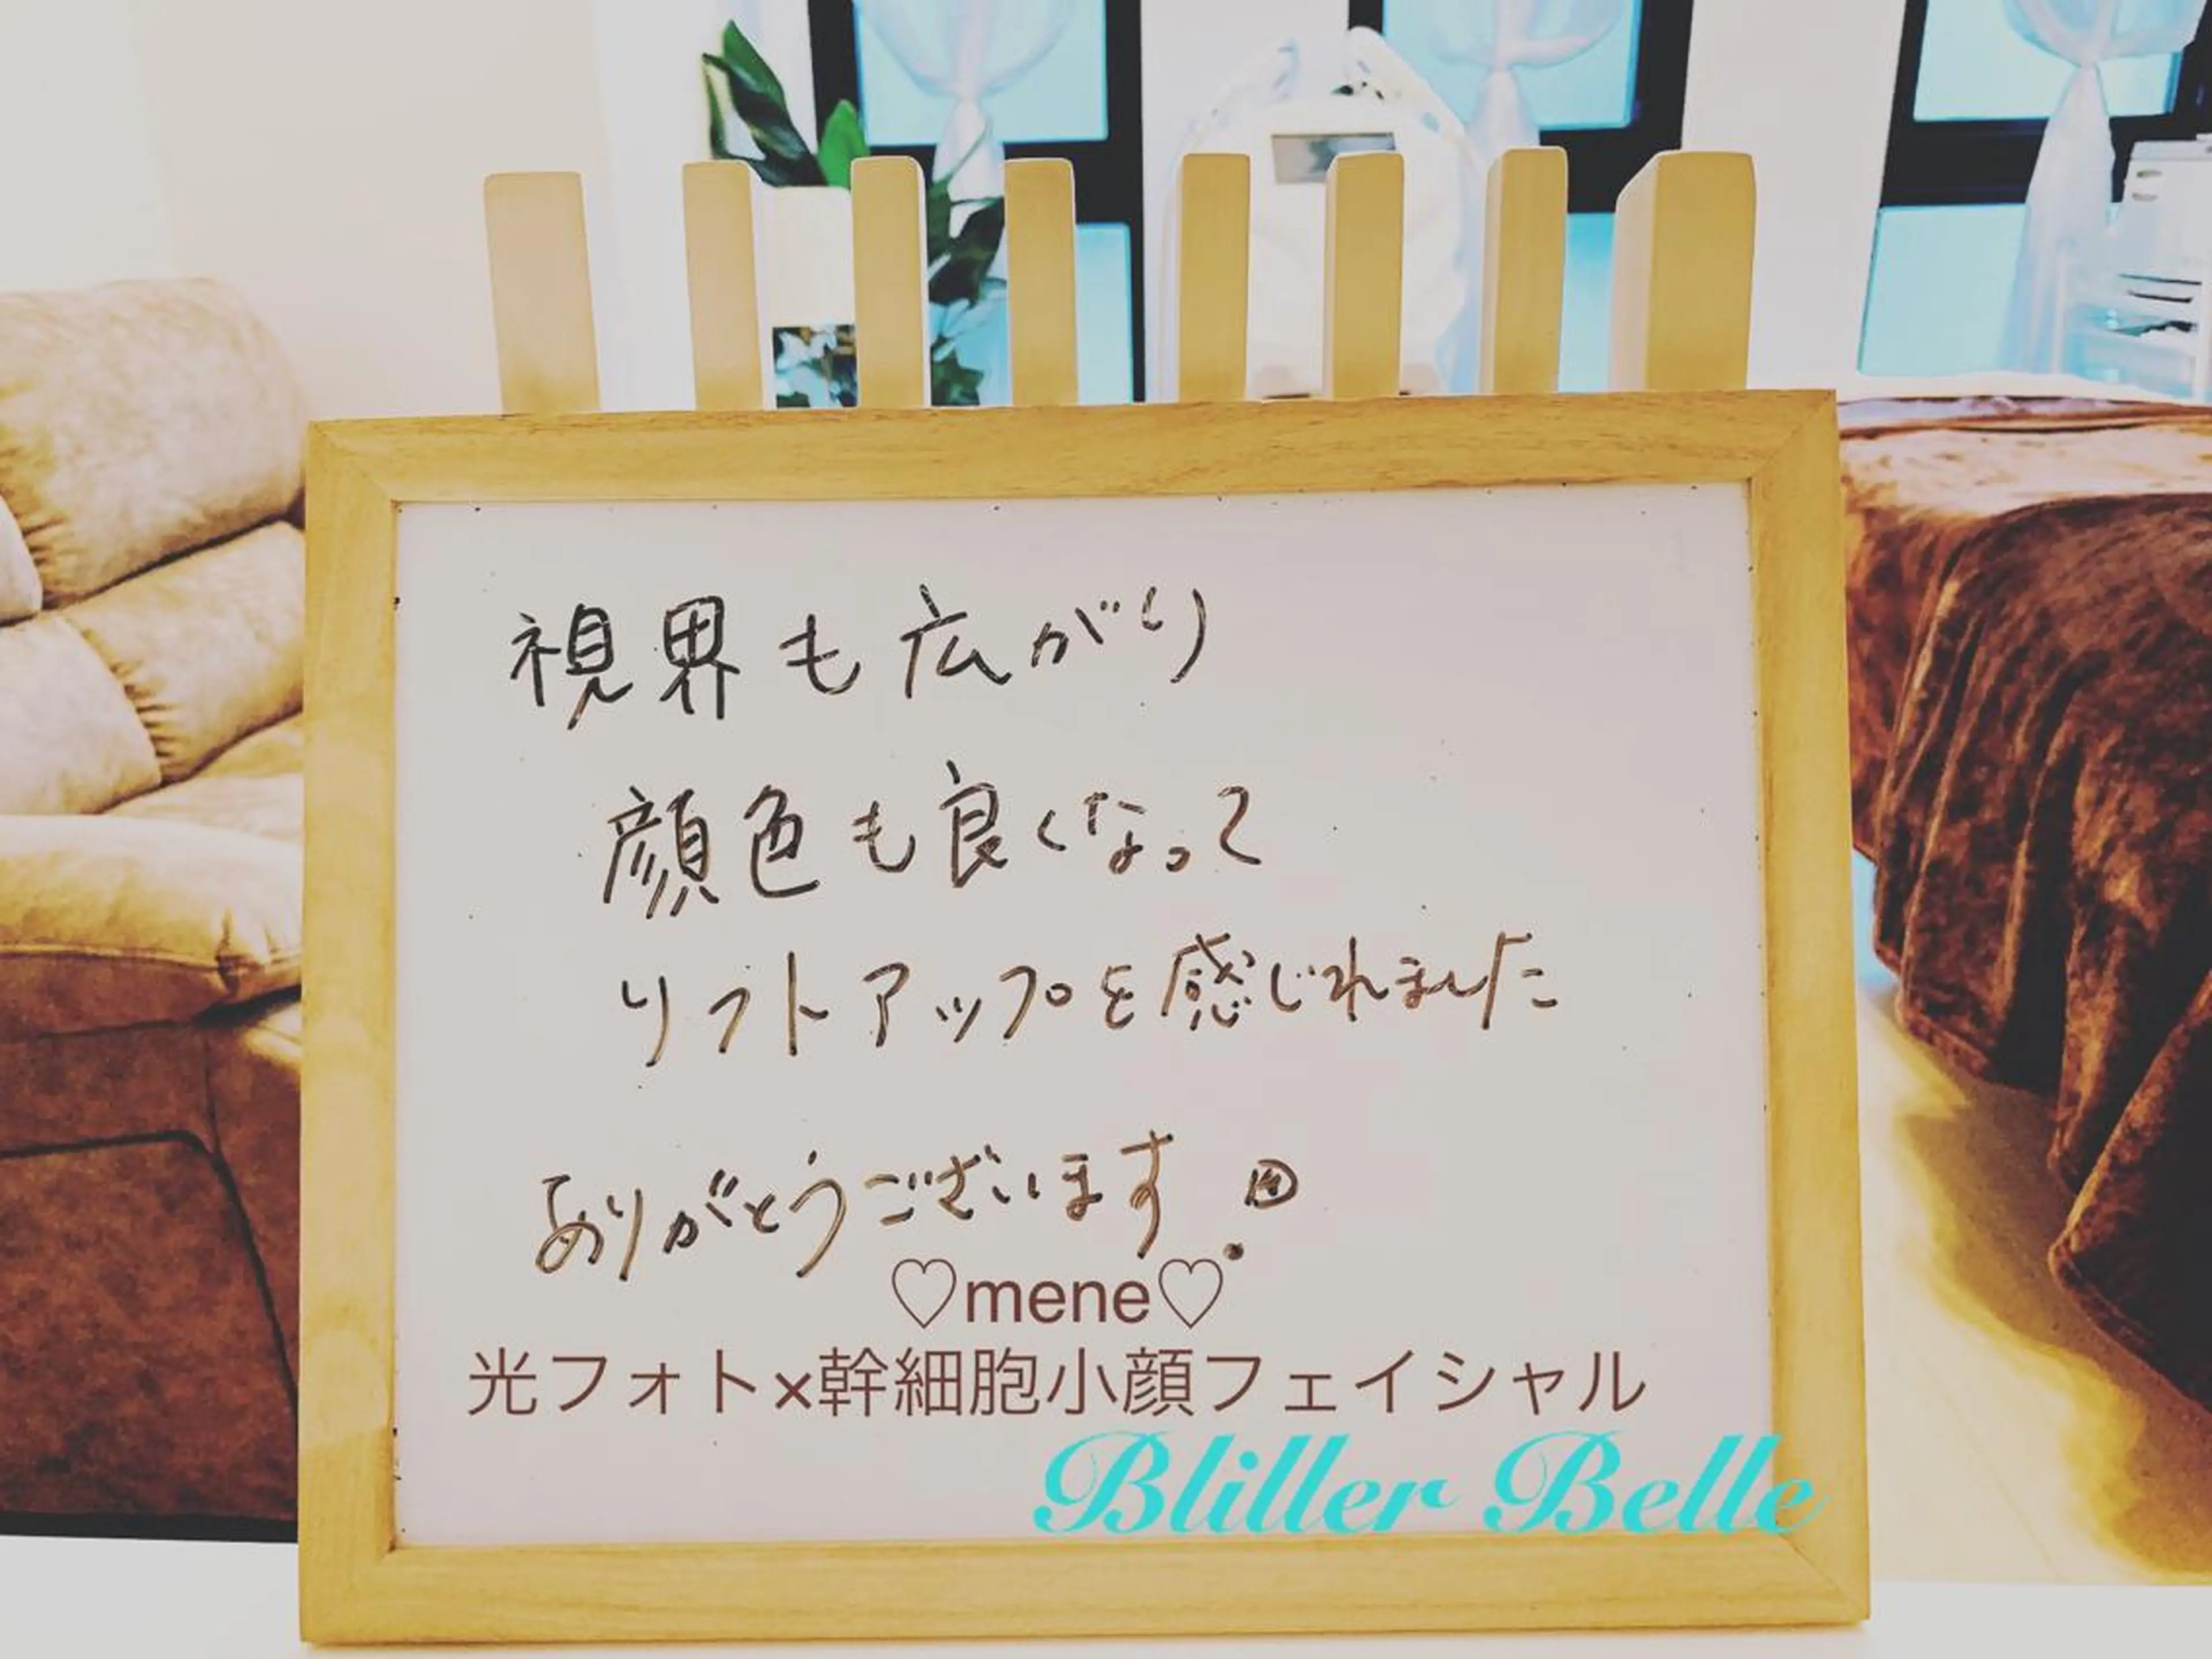 視界も広がり
顔色も良くなって
リフトアップを感じれました
ありがとうございます
♡mene♡
光フォト×幹細胞小顔フェイシャル
Bliller Belle